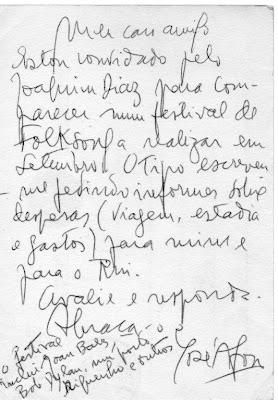 Meu caro amigo
Estou convidado pelo
Joaquim Diaz para com-
parecer num festival de
Folksong a realizar em
Setembro. O tipo escreveu-
-me pedindo informes sobre
despesas (viagem, estadia
e gastos) para mim e
para o Rui.
Avalie e responda.
Abraça-o
José Afon
o festival
inclui Joan Baez,
Bob Dylan, um porto-
riquenho e outros